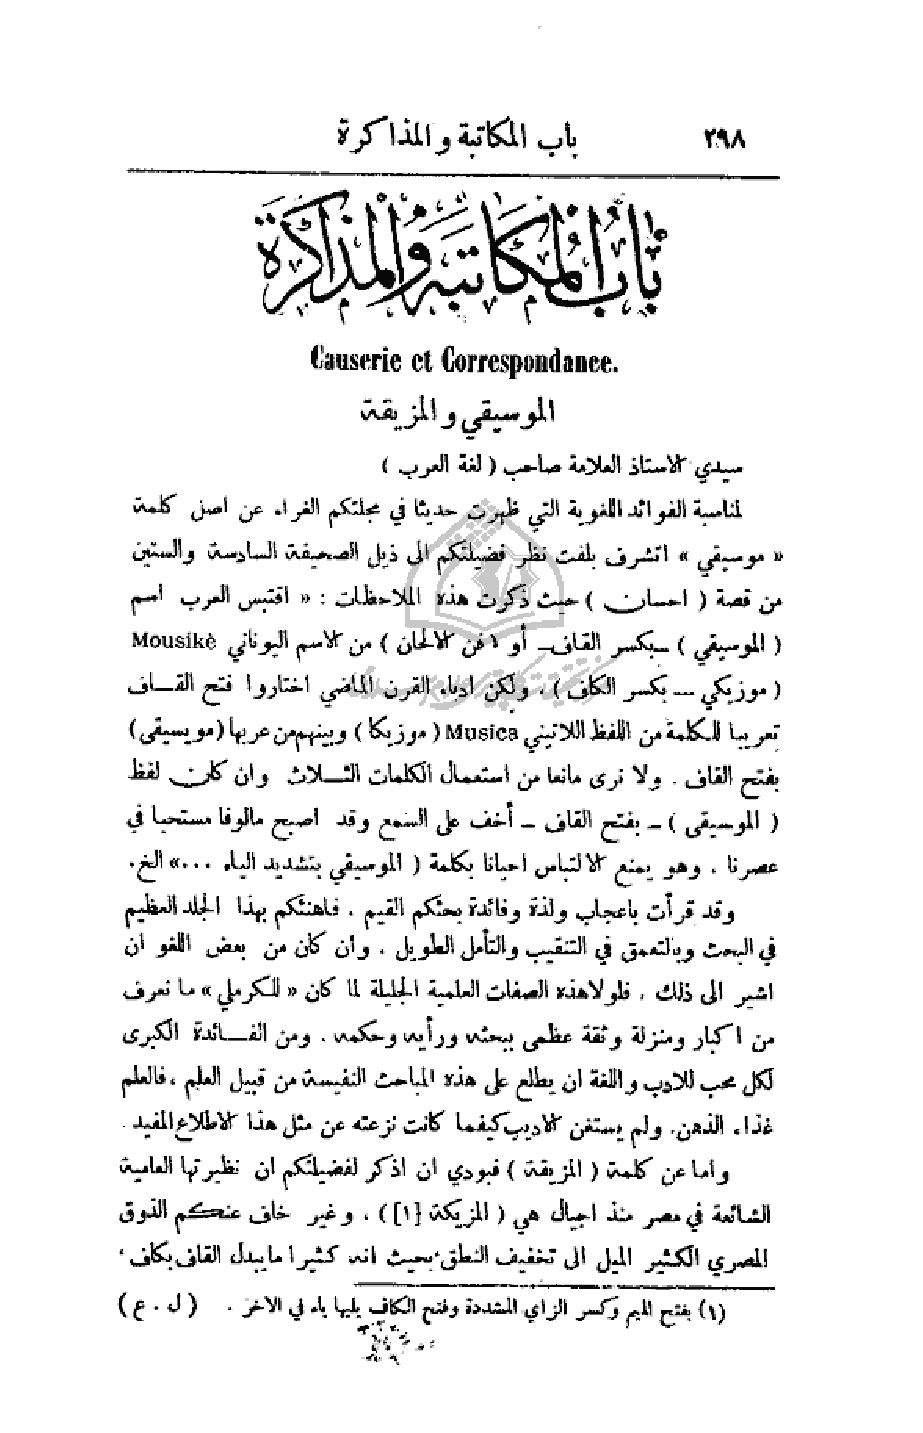 ٢٩٨ باب المكاتبة والمذاكرة
باب المكاتبة والمذاكرة
Causerie et Correspondance.
الموسيقي والمزيقة
سيدي الاستاذ العلامة صاحب ( لغة العرب )
لمناسبة الفوائد اللغوية التي ظهرت حديثا في مجلتكم الغراء عن اصل كلمة
« موسيقي » اتشرف بلفت نظر فضيلتكم الى ذيل الصحيفة السادسة والستين
من قصة ( احسان ) حيث ذكرت هذه الملاحظات : « اقتبس العرب اسم
( الموسيقي ) ــ بكسر القاف ــ أو ( فن الالحان ) من الاسم اليوناني Mousikè
( موزيكي ــ بكسر الكاف ) ، ولكن ادباء القرن الماضي اختاروا فتح القــاف
تعريبا للكلمة من اللفظ اللاتيني Musica ( موزيكا ) وبينهم من عربها (مويسيقى)
بفتح القاف . ولا نرى مانعا من استعمال الكلمات الثــلاث وان كان لفظ
( الموسيقى ) ــ بفتح القاف ــ أخف على السمع وقد اصبح مالوفا مستحبا في
عصرنا . وهو يمنع الالتباس احيانا بكلمة ( الموسيقي بتشديد الياء ...» الخ .
وقد قرأت باعجاب ولذة وفائدة بحثكم القيم ، فاهنئكم بهذا الجلد العظيم
في البحث وبالتعمق في التنقيب والتأمل الطويل . وان كان من بعض اللغو ان
اشير الى ذلك . فلولا هذه الصفات العلمية الجليلة لما كان « للكرملي » ما نعرف
من اكبار ومنزلة وثقة عظمى ببحثه ورأيه وحكمه . ومن الفــائدة الكبرى
لكل محب للادب واللغة ان يطلع على هذه المباحث النفيسة من قبيل العلم ، فالعلم
غذاء الذهن، ولم يستغن الاديب كيفما كانت نزعته عن مثل هذا الاطلاع المفيد .
واما عن كلمة ( المزيقة ) فبودي ان اذكر لفضيلتكم ان نظيرتها العامية
الشائعة في مصر منذ اجيال هي ( المزيكة [١] ) ، وغير خاف عنكم الذوق
المصري الكثير الميل الى تخفيف النطق بحيث انه كثيرا ما يبدل القاف بكاف ،
(١) بفتح الميم وكسر الزاي المشددة وفتح الكاف يليها ياء في الاخر . ( ل . ع )